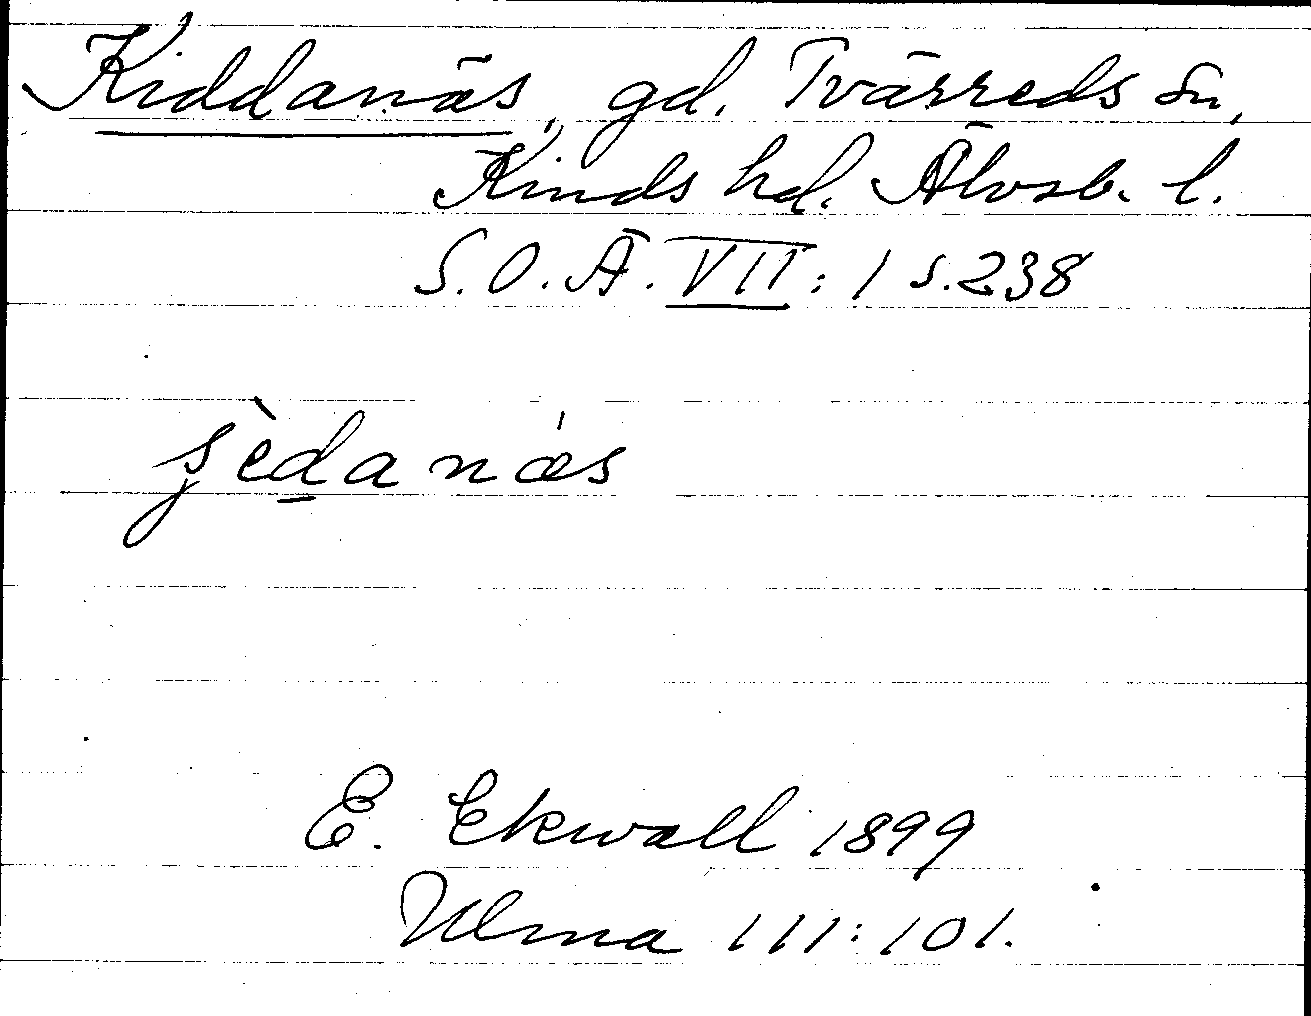 Kiddanäs, gd. Tvärreds sn,
Kinds hd. Älvsb. l.
S.O.Ä. VII: 1 s.238
E. Ekwall 1899
Ulma 111:101.